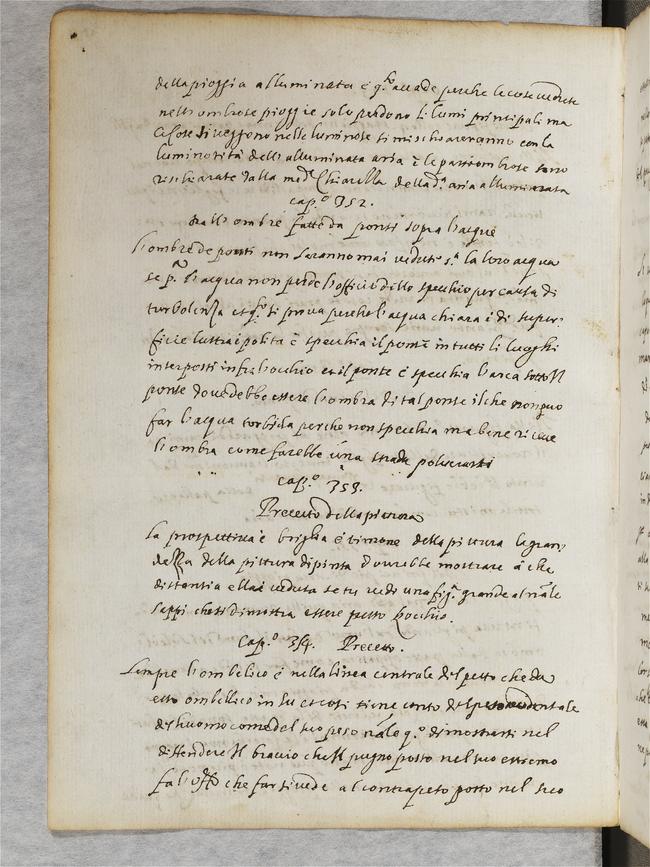 della pioggia alluminata è q.to accade perche le cose vedute
nelle ombrose pioggie solo perdono li lumi principali ma
le cose si veggono nelle luminose si mischiaeranno con la
luminosità dell alluminata aria è le parti ombrose sono
rischiarate dalla med.a chiarezza della d.a aria alluminata
cap.o 352.
Dell ombre fatte da ponti sopra l'acque
L'ombre de ponti non saranno mai vedute s.a la loro acqua
se p.a l'acqua non perde l'offitio dello specchio per causa di
turbolenza et q.o si prova perche l'acqua chiara è di super-
ficie lustra è polita è specchia il ponte in tutti li luoghi
interposti infra l'occhio et il ponte è specchia l'arca sotto il
ponte dove debbe essere l'ombra di tal ponte il che non può
far l'acqua torbida perche non specchia ma bene riceve
l'ombra come farebbe una strada polverosa
cap.o 353.
Precetto della pittura
La prospettiva è briglia è timone della pittura la gran-
dezza della pittura dipinta dovrebbe mostrare à che
distantia ella è veduta se tu vedi una fig.a grande al n'ale
sappi che si dimostra essere presso l'occhio.
Cap.o 354. Precetto.
Sempre l'ombelico è nella linea centrale del petto che da
esso ombellico in su et così tiene conto del peso accidentale
del huomo come del suo peso n'ale q.o si dimostra nel
distendere il braccio che il pugno posto nel suo estremo
fa l'offo che far si vede al contrapeso posto nel suo